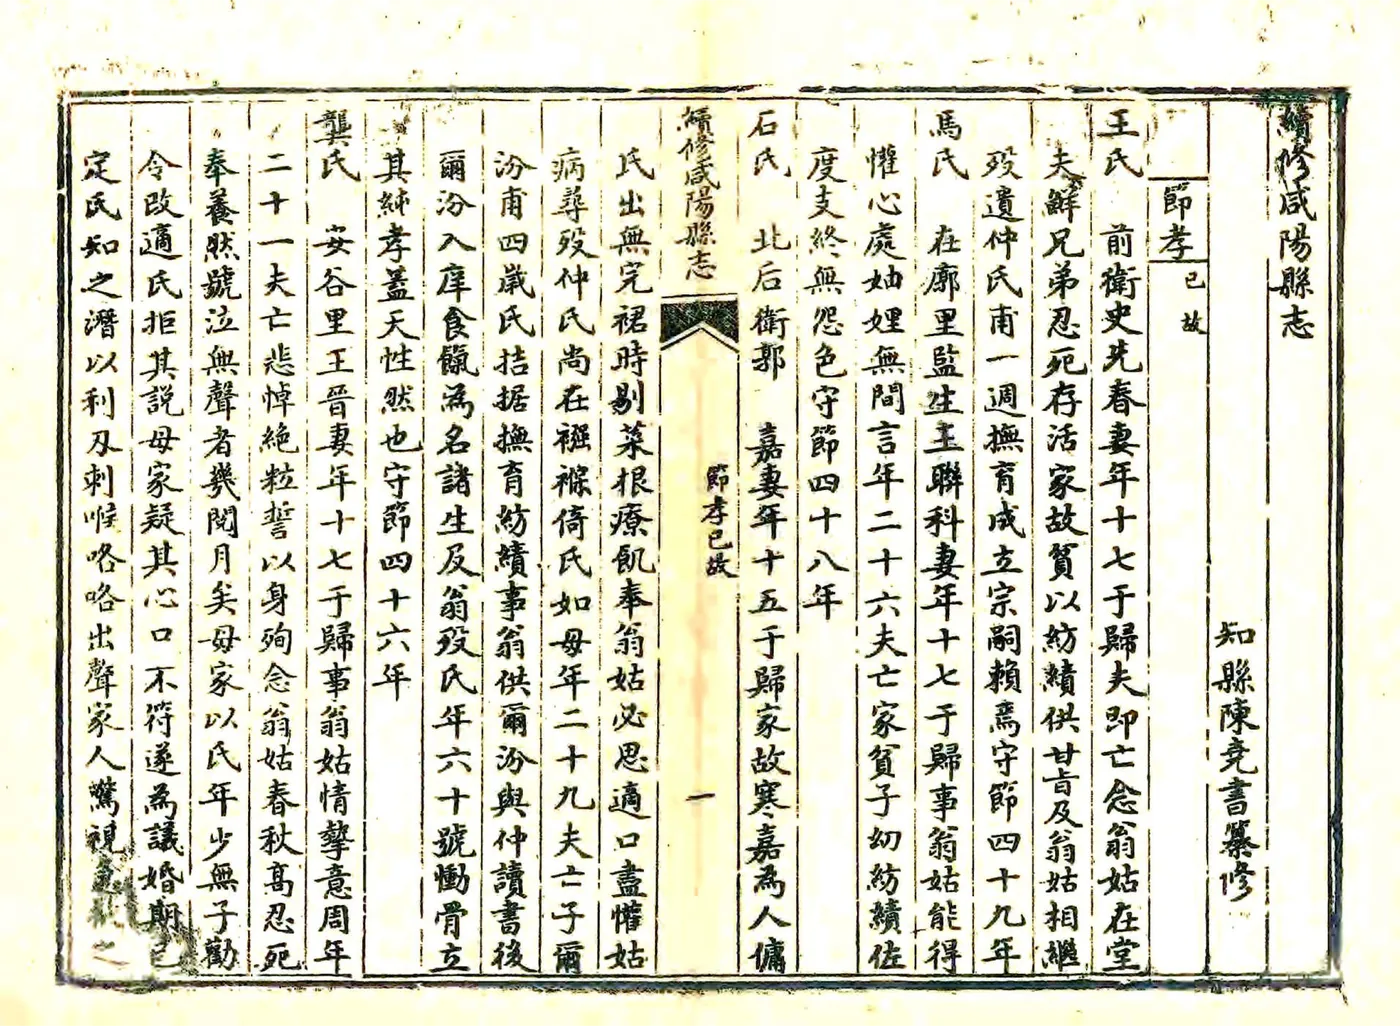 續修咸陽縣志
知縣陳堯書纂修
節孝 已故
王氏 前衛史先春妻年十七于歸夫即亡念翁姑在堂
夫鮮兄弟忍死存活家故貧以紡績供甘旨及翁姑相繼
歿遺仲氏甫一週撫育成立宗嗣賴焉守節四十九年
馬氏 在廓里監生王聯科妻年十七于歸事翁姑能得
懽心處妯娌無間言年二十六夫亡家貧子幼紡績佐
度支終無怨色守節四十八年
石氏 北后衛郭 嘉妻年十五于歸家故寒嘉為人傭
續修咸陽縣志 節孝已故 一
氏出無完裙時剔菜根療飢奉翁姑必思適口盡懽姑
病尋歿仲氏尚在襁褓倚氏如母年二十九夫亡子爾
汾甫四歲氏拮据撫育紡績事翁供爾汾與仲讀書後
爾汾入庠食餼為名諸生及翁歿氏年六十號慟骨立
其純孝蓋天性然也守節四十六年
龔氏 安谷里王晉妻年十七于歸事翁姑情摯意周年
二十一夫亡悲悼絕粒誓以身殉念翁姑春秋高忍死
奉養然號泣無聲者幾閱月矣母家以氏年少無子勸
令改適氏拒其說母家疑其心口不符遂為議婚期已
定氏知之潛以利刃刺喉咯咯出聲家人驚視之